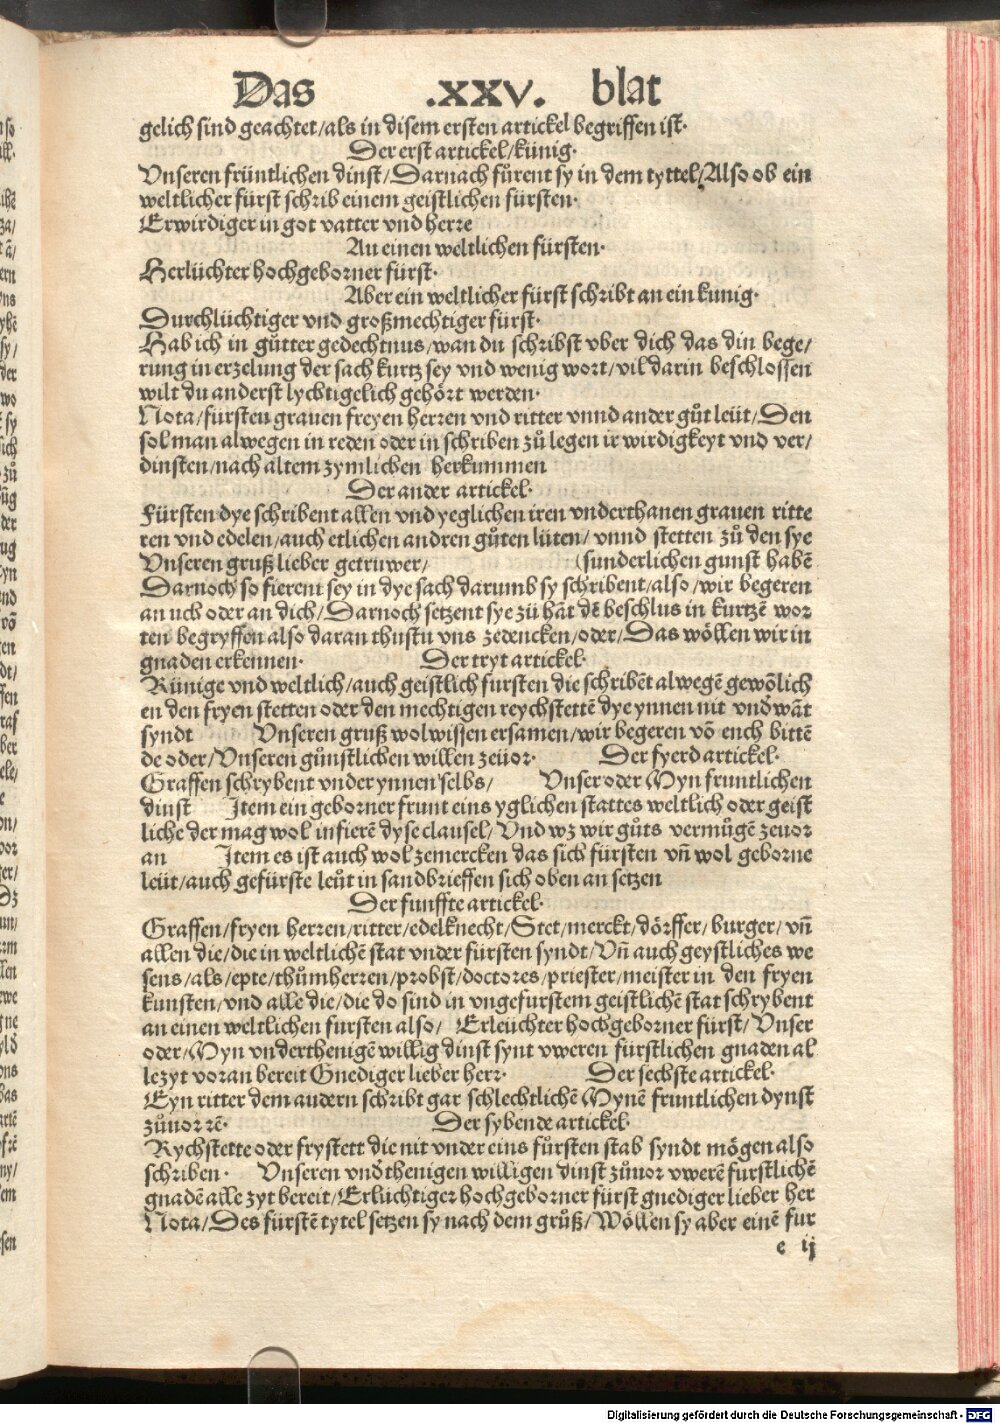 Das .XXV. blat
gelich sind geachtet/als in disem ersten artickel begriffen ist·
Der erst artickel/künig·
Vnseren früntlichen dinst/Darnach fůrent sy in dem tyttel/Also ob ein
weltlicher fürst schrib einem geistlichen fürsten·
Erwirdiger in got vatter vnd herre
An einen weltlichen fürsten·
Herlüchter hochgeborner fürst·
Aber ein weltlicher fürst schribt an ein kunig·
Durchlüchtiger vnd großmechtiger fürst·
Hab ich in gůtter gedechtnus/wan du schribst vber dich das din bege/
rung in erzelung der sach kurtz sey vnd wenig wort/vil darin beschlossen
wilt du anderst lychtigelich gehört werden·
Nota/fürsten grauen freyen herren vnd ritter vnnd ander gůt leüt/Den
sol man alwegen in reden oder in schriben zů legen ir wirdigkeyt vnd ver/
dinsten/nach altem zymlichen herkummen
Der ander artickel·
Fürsten dye schribent allen vnd yeglichen iren vnderthanen grauen ritte
ren vnd edelen/auch etlichen andren gůten lüten/vnnd stetten zů den sye
Vnseren gruß lieber getruwer/ (sunderlichen gunst habē
Darnoch so fierent sey in dye sach darumb sy schribent/also/wir begeren
an uch oder an dich/Darnoch setzent sye zü hāt dē beschlus in kurtzē wor
ten begryffen also daran thustu vns zedencken/oder/Das wöllen wir in
gnaden erkennen· Der tryt artickel·
Künige vnd weltlich/auch geistlich fursten die schribēt alwegē gewōlich
en den fryen stetten oder den mechtigen reychstettē dye ynnen nit vnd wāt
syndt Vnseren gruß wolwissen ersamen/wir begeren vō euch bittē
de oder/Vnseren gůnstlichen willen zeüor· Der fyerd artickel·
Graffen schrybent vnder ynnen selbs/ Vnser oder Myn fruntlichen
dinst Item ein geborner frunt eins yglichen stattes weltlich oder geist
liche der mag wol infierē dyse clausel/Vnd wz wir gůts vermügē zeuor
an Item es ist auch wol zemercken das sich fürsten vn̄ wol geborne
leüt/auch gefürste leüt in sandbrieffen sich oben an setzen
Der funffte artickel·
Graffen/fryen herren/ritter/edelknecht/Stet/merckt/dörffer/burger/vn̄
allen die/die in weltlichē stat vnder fürsten syndt/Vn̄ auch geystliches we
sens/als/epte/thůmherren/probst/doctores/priester/meister in den fryen
kunsten/vnd alle die/die do sind in vngefurstem geistlichē stat schrybent
an einen weltlichen fursten also/ Erleüchter hochgeborner fürst/Vnser
oder/Myn vnderthenigē willig dinst synt vweren fürstlichen gnaden al
lezyt voran bereit Gnediger lieber herr· Der sechste artickel·
Eyn ritter dem andern schribt gar schlechtlichē Mynē fruntlichen dynst
zůuor rē· Der sybende artickel·
Rychstette oder frystett die nit vnder eins fůrsten stab syndt mögen also
schriben· Vnseren vndthenigen willigen dinst zůuor vwerē furstlichē
gnadē alle zyt bereit/Erlüchtiger hochgeborner fürst gnediger lieber her
Nota/Des fürstē tytel setzen sy nach dem grůß/Wöllen sy aber einē fur
e ij
Digitalisierung gefördert durch die Deutsche Forschungsgemeinschaft - DFG